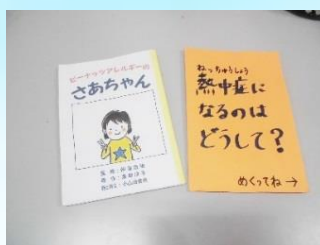 ピーナッツアレルギーの
さあちゃん
ねっちゅうしょう
熱中症に
なるのは
どうして？
めくってね→